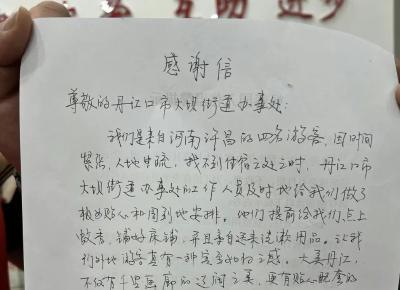 互助 进步
感谢信
尊敬的丹江口市大坝街道办事处:
我们是来自河南许昌的四名游客,因时间
紧张,人地生疏,找不到住宿之处之时,丹江口市
大坝街道办事处工作人员及时地给我们做了
极为贴心和周到地安排。他们提前给我们点上
蚊香,铺好床铺,并且亲自送来洗漱用品。让我
们外地游客真有一种宾至如归之感。大美丹江,
不仅有千里画廊的辽阔之美,更有贴心配套的